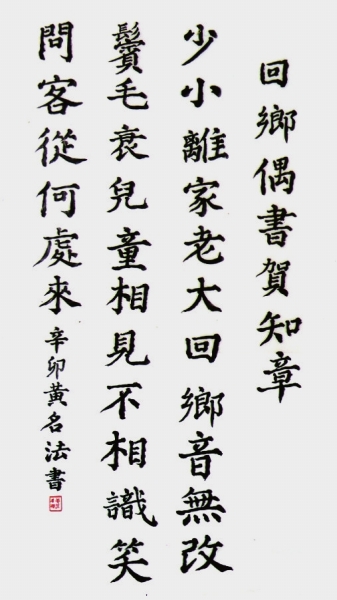 回鄉偶書賀知章
少小離家老大回鄉音無改
鬢毛衰兒童相見不相識笑
問客從何處來辛卯黃名法書